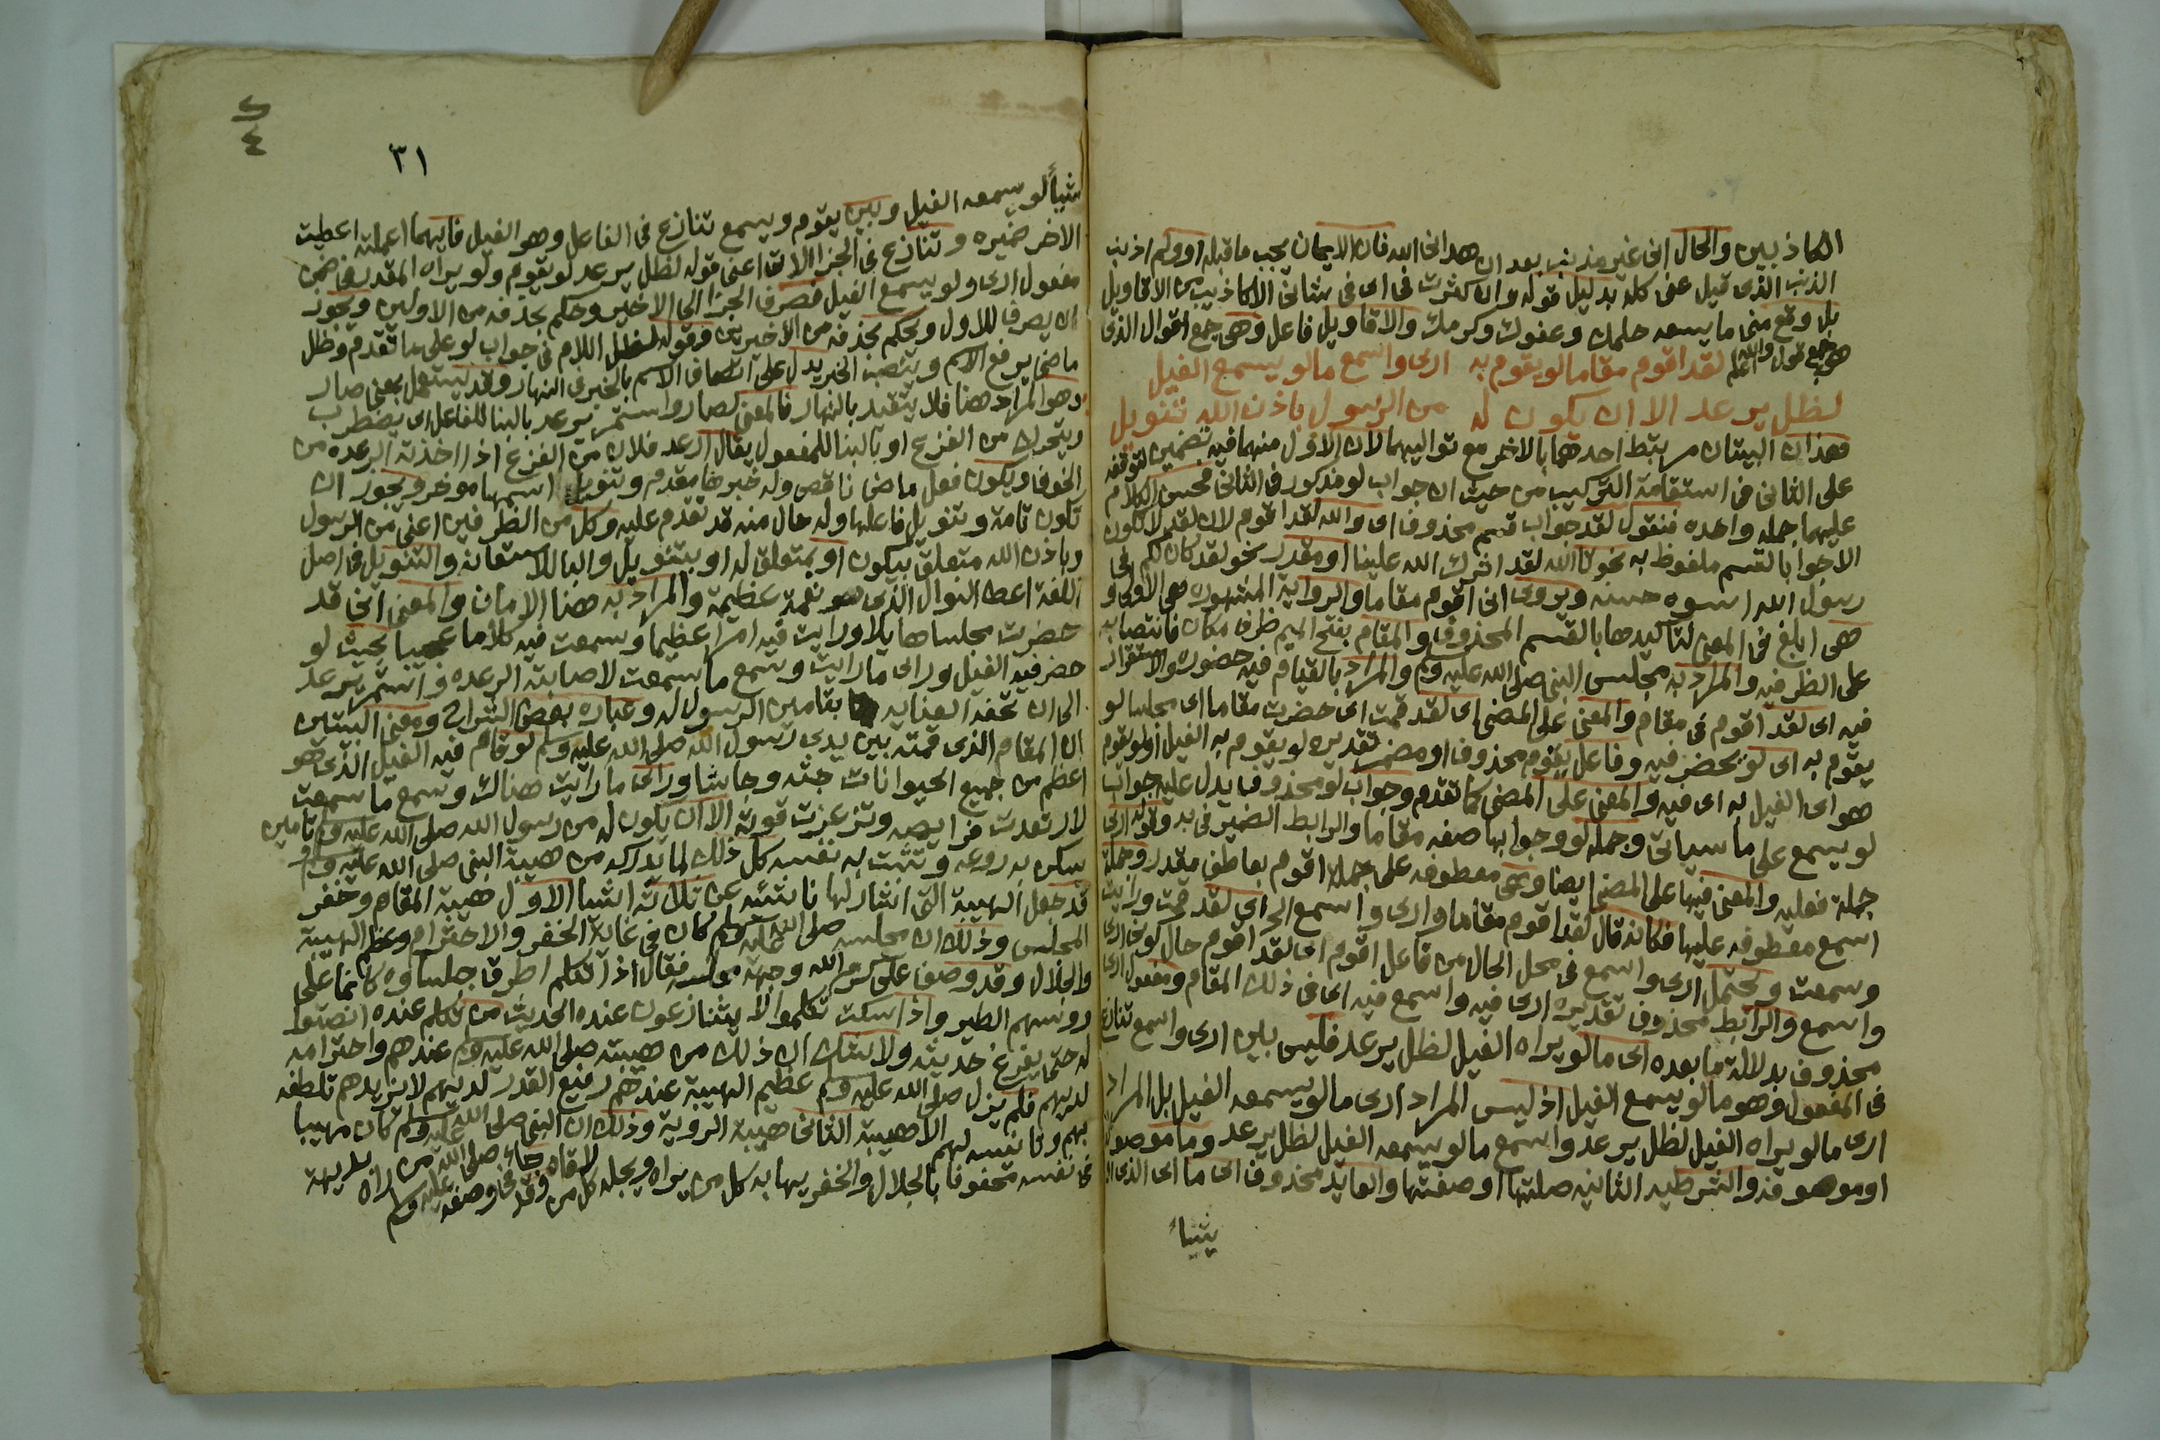 الكاذبين والحال انى غير مذنب بعد ان هدانى الله فان الايمان يجب ما قبله او ولم اذنب
الذنب الذى قيل عنى كله بدليل قوله وان كثرت فى اى فى شانى الاكاذيب من الاقاويل
بل وقع منى ما يسعه حلمك وعفوك وكرمك والاقاويل فاعل وهى جمع اقوال الذى
هو جمع قول والله اعلم لقد اقوم مقاما لو يقوم به ارى واسمع ما لو يسمع الفيل
لظل يرعد الا ان يكون له من الرسول باذن الله تنويل
فهذان البيتان مرتبط احدهما بالاخر مع تواليهما لان الاول منهما فيه تضمين لتوقفه
على الثانى فى استقامة التركيب من حيث ان جواب لو مذكور فى الثانى فحسن الكلام
عليهما جمله واحده فنقول لقد جواب قسم محذوف اى والله لقد اقوم لان لقد لا تكون
الا جوابا لقسم ملفوظ به نحو تالله لقد اثرك الله علينا او مقدر نحو لقد كان لكم فى
رسول الله اسوه حسنه ويروى انى اقوم مقاما والرواية المشهوره هى الاولى و
هى ابلغ فى المعنى لتاكيدها بالقسم المحذوف والمقام بفتح الميم ظرف مكان فانتصابه
على الظرفيه والمراد به مجلس النبى صلى الله عليه وسلم والمراد بالقيام فيه حضوره والاستقرار
فيه اى لقد اقوم فى مقام والمعنى على المضى اى لقد قمت اى حضرت مقاما اى مجلسا لو
يقوم به اى لو يحضر فيه وفاعل يقوم محذوف او مضمر تقديره لو يقوم به الفيل او لو يقوم
هو اى الفيل به اى فيه والمعنى على المضى كما تقدم وجواب لو محذوف يدل عليه جواب
لو يسمع على ما سياتى وجمله لو وجوابها صفه مقاما والرابط الضمير فى به وقوله ارى
جملة فعليه والمعنى فيها على المضى ايضا وهى معطوفه على جملة اقوم بعاطف مقدر وجملة
اسمع معطوفه عليها فكانه قال لقد اقوم مقاما وارى واسمع الخ اى لقد قمت ورايت
وسمعت ويحتمل ارى واسمع فى محل الحال من فاعل اقوم اى لقد اقوم حال كونى ارى
واسمع والرابط محذوف تقديره ارى فيه واسمع فيه اى فى ذلك المقام ومفعول ارى
محذوف بدلالة ما بعده اى ما لو يراه الفيل لظل يرعد فليس بين ارى واسمع تنازع
فى المفعول وهو ما لو يسمع الفيل اذ ليس المراد ارى ما لو يسمعه الفيل بل المراد
ارى ما لو يراه الفيل لظل يرعد واسمع ما لو يسمعه الفيل لظل يرعد وما موصوله
او موصوفه والشرطيه الثانيه صلتها او صفتها والعايد محذوف اى ما اى الذى او
شيأ
٣١
شيأ لو يسمعه الفيل وبين يقوم ويسمع تنازع فى الفاعل وهو الفيل فايهما اعملته اعطيت
الاخر ضميره وتنازع فى الجزا الاتى اعنى قوله لظل يرعد لو يقوم ولو يراه المقدر فى ضمن
مفعول ارى ولو يسمع الفيل فصرف الجزا الى الاخير وحكم بحذفه من الاولين ويجوز
ان يصرف للاول ويحكم بحذفه من الاخيرين وقوله لظل اللام فى جواب لو على ما تقدم وظل
ماضى يرفع الاسم وينصب الخبر يدل على اتصاف الاسم بالخبر فى النهار وقد يستعمل بمعنى صار
وهو المراد هنا فلا يتقيد بالنهار فالمعنى لصار واستمر يرعد بالبنا للفاعل اى يضطرب
ويتحرك من الفزع او بالبنا للمفعول يقال ارعد فلان من الفزع اذا اخذته الرعده من
الخوف ويكون فعل ماضى ناقص وله خبرها مقدم وتنويل اسمها موخر ويجوز ان
تكون تامة وتنويل فاعلها وله حال منه قد تقدم عليه وكل من الظرفين اعنى من الرسول
وباذن الله متعلق بيكون او بمتعلق له او بتنويل والبا للاستعانه والتنويل فى اصل
اللغة اعطا النوال الذى هو نعمة عظيمة والمراد به هنا الامان والمعنى انى قد
حضرت مجلسا هايلا ورايت فيه امرا عظيما وسمعت فيه كلاما عجيبا بحيث لو
حضر فيه الفيل وراى ما رايت وسمع ما سمعت لاصابته الرعده واستمر يرعد
الى ان تحفه العنايه بتامين الرسول له وعباره بعض الشراح ومعنى البيتين
ان المقام الذى قمته بين يدى رسول الله صلى الله عليه وسلم لو قام فيه الفيل الذى هو
اعظم من جميع الحيوانات جثه وجاشا وراى ما رايت هناك وسمع ما سمعت
لارتعدت فرايصه وتزعزعت قوته الا ان يكون له من رسول الله صلى الله عليه وسلم تامين
يسكن به روعه وتثبت به نفسه كل ذلك لما يدركه من هيبة النبى صلى الله عليه وسلم
قد جعل الهيبة التى اشار لها ناشئه عن ثلاثة اشيا الاول هيبة المقام وخفر
المجلس وذلك ان مجلسه صلى الله عليه وسلم كان فى غاية الخفر والاحترام وعظم الهيبة
والجلال وقد وصف على كرم الله وجهه مجلسه فقال اذا تكلم اطرق جلساوه كانما على
روسهم الطير واذا سكت تكلموا لا يتنازعون عنده الحديث من تكلم عنده انصتوا
له حتى يفرغ حديثه ولا شك ان ذلك من هيبته صلى الله عليه وسلم عندهم واحترامه
لديهم فلم يزل صلى الله عليه وسلم عظيم الهيبة عندهم رفيع القدر لديهم لا يزيدهم تلطفه
بهم وتانيسه لهم الا هيبة الثانى هيبة الروية وذلك ان النبى صلى الله عليه وسلم كان مهيبا
فى نفسه محفوفا بالجلال والخفر يهابه كل من يراه ويجله كل من لاقاه وقد جاء فى وصفه صلى الله عليه وسلم من راه بديهة